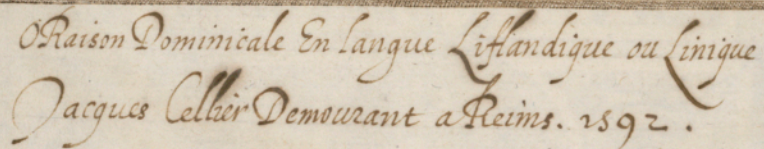 ORaison Dominicale En langue Liflandique ou Linique
Jacques Cellier Demourant a Reims. 1592.